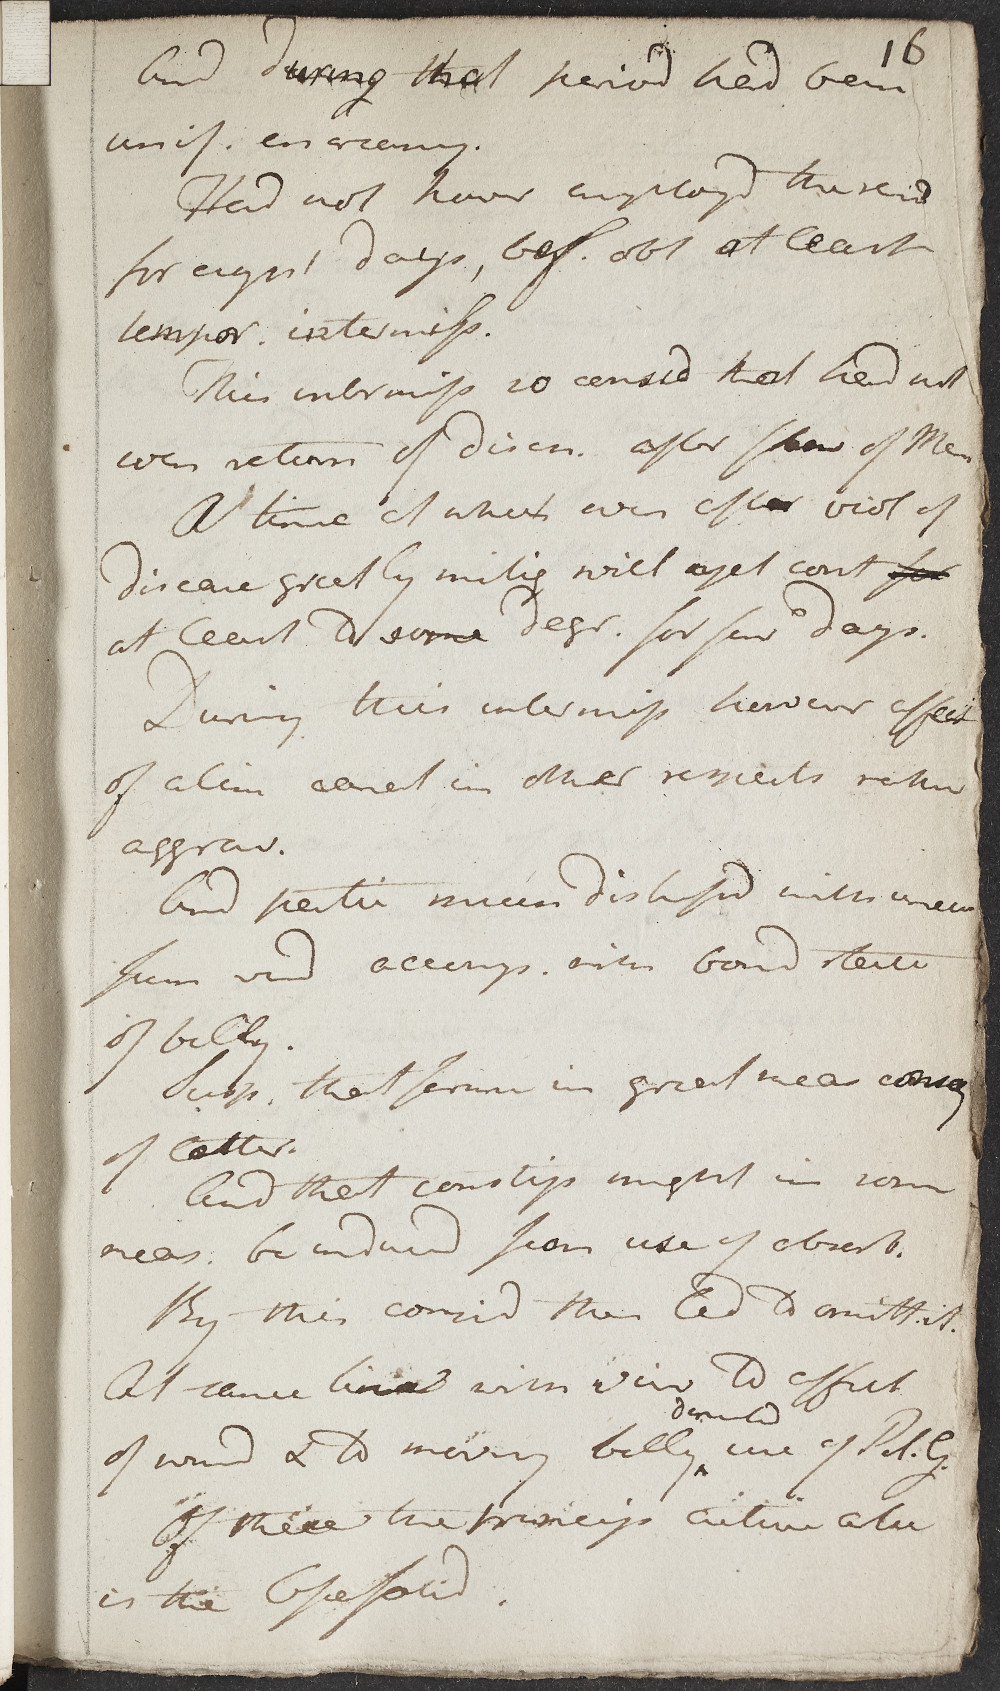 16
And during that period had been
unif. in creasing.
Had not howr employd this reid
for eight days, bef. obt at least
tempor. intermiss.
This intermiss so consid that had not
even return of disease. after flow of Men
A time at which even after viol of
disease greatly mitig will yet cont for
at least to some degr. for few days.
During this intermiss however effect
of alim canal in other respects rather
aggrav.
And patie much distressd with uneas
from wind accomp. with bound state
of belly.
Susp. that former in great meas conseq
of latter.
And that constip might in some
meas. be induced from use of absorb.
By this consid then led to omitt. it.
At same time with view to effect
of wind & to moving belly directed use of Pil. G.
Of these the princip active aloe
is the Assafoetid.